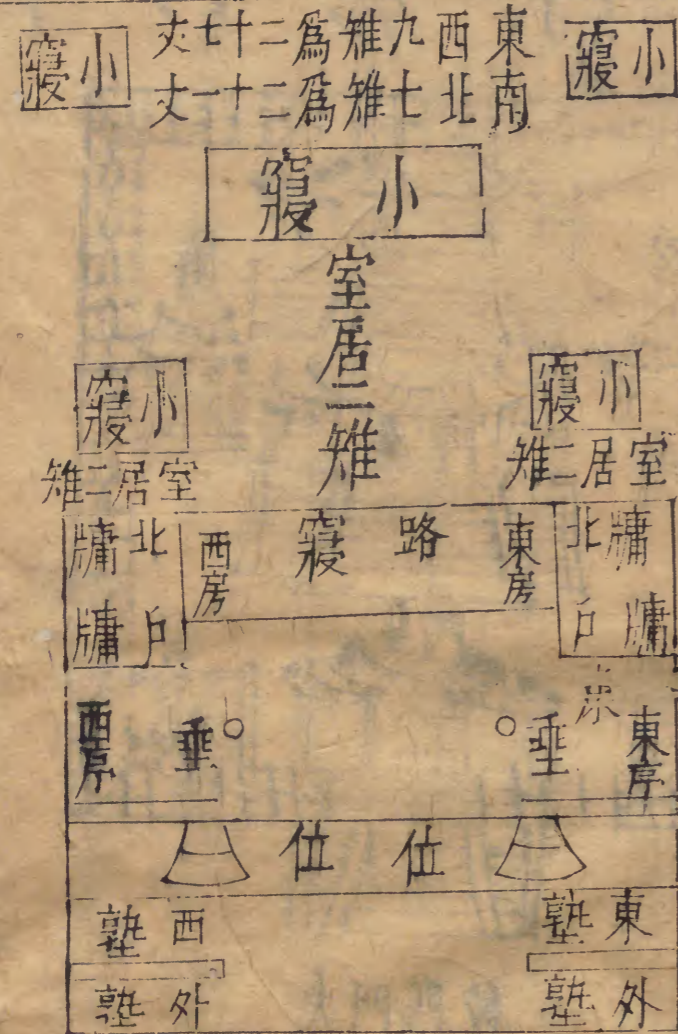 小寢
東西九雉爲二十七丈
南北七雉爲二十一丈
小寢
小寢
室居二雉
小寢
室居二雉
小寢
室居二雉
北牗
戶牗
東房
路寢
西房
北牗
戶牗
東序
垂
垂
西序
位
位
東塾
西塾
外塾
外塾